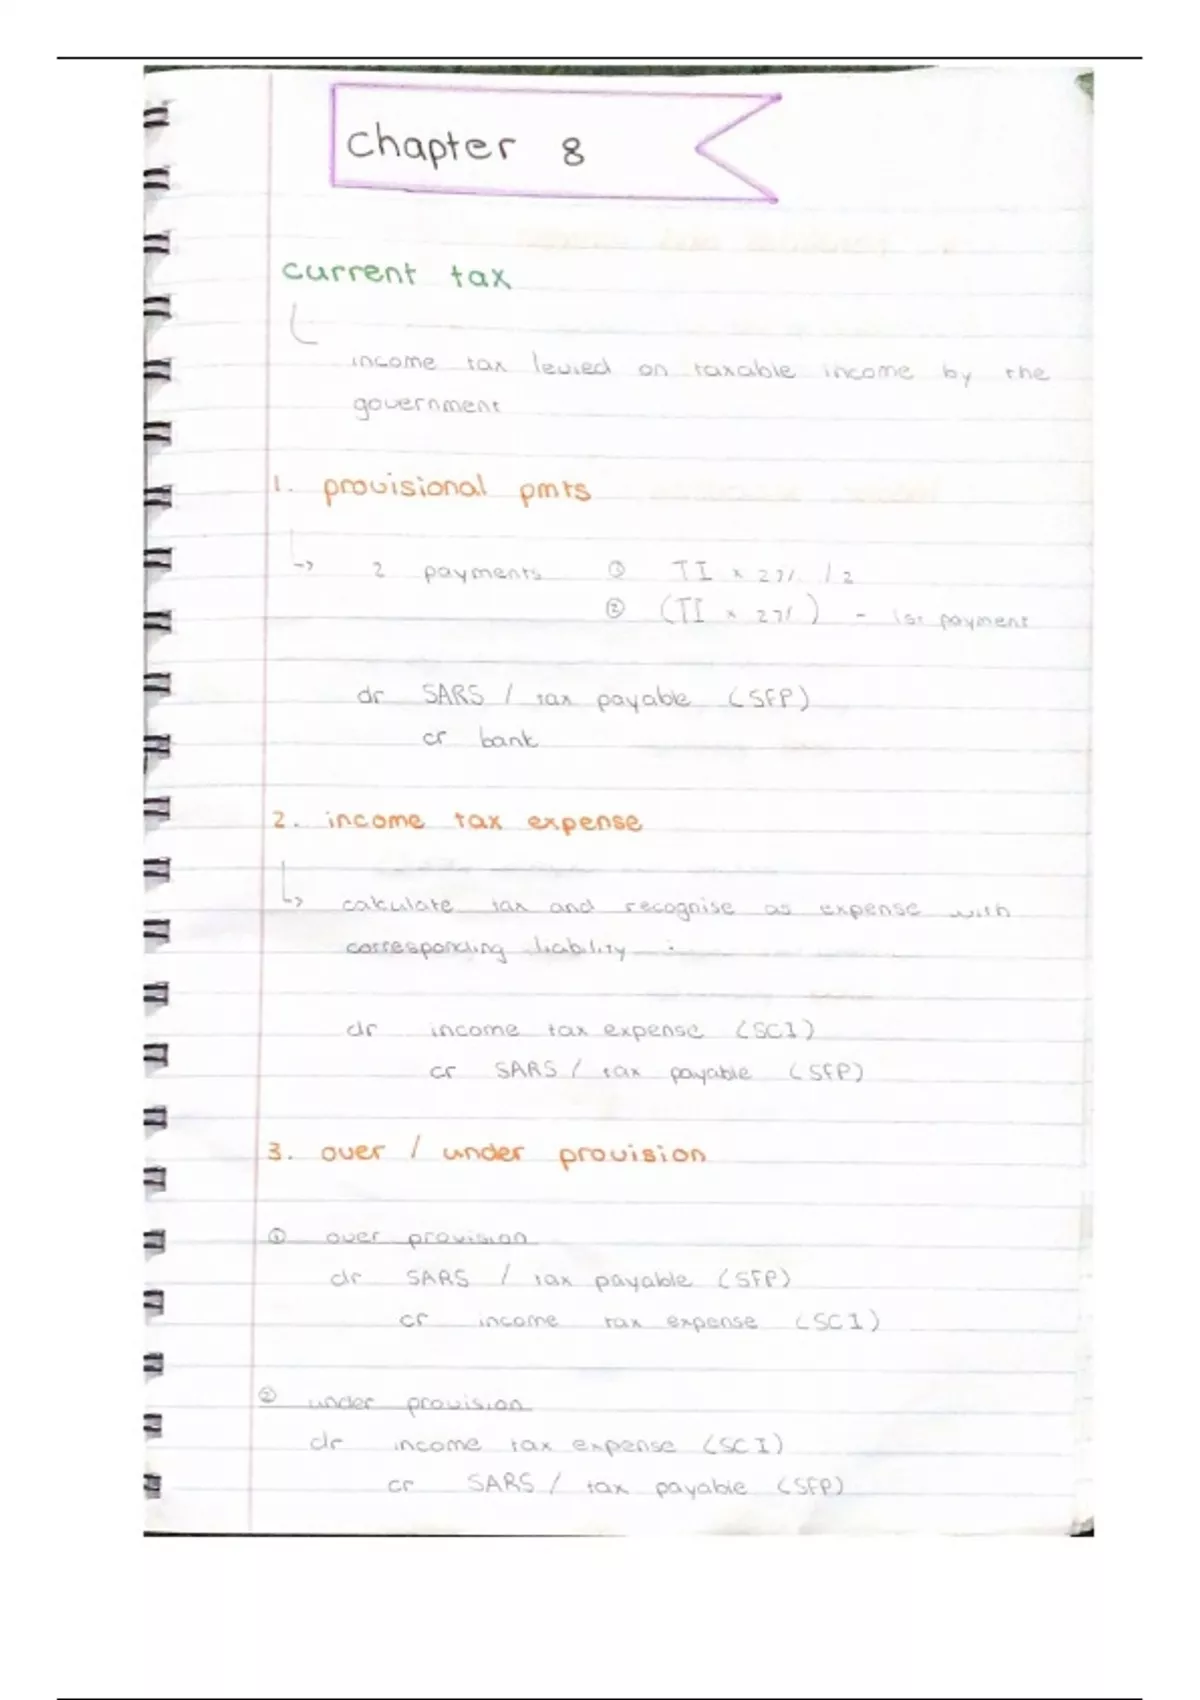 chapter 8
current tax
income tax levied on taxable income by the
government
1. provisional pmts
→ 2 payments ① TI x 27% / 2
② (TI x 27%) - 1st payment
dr SARS / tax payable (SFP)
cr bank
2. income tax expense
↳ calculate tax and recognise as expense with
corresponding liability :
dr income tax expense (SCI)
cr SARS / tax payable (SFP)
3. over / under provision
① over provision
dr SARS / tax payable (SFP)
cr income tax expense (SCI)
② under provision
dr income tax expense (SCI)
cr SARS / tax payable (SFP)